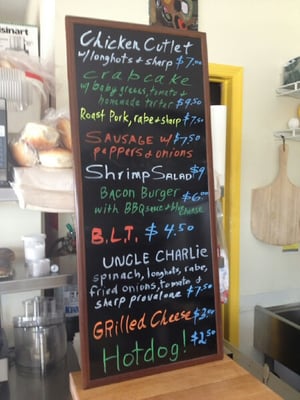 Cuisinart
Chicken Cutlet
w/longhots & sharp $7.00
crabcake
w/ baby greens, tomato &
homemade tarter $9.50
Roast Pork, rabe & sharp $7.50
SAUSAGE w/ $7.50
peppers & onions
Shrimp SALAD $9
BACON Burger $6.00
with BBQ sauce & blue CHEESE
B.L.T. $4.50
UNCLE CHARLIE
spinach, longhots, rabe,
fried onions, tomato &
sharp provalone $7.50
GRilled Cheese $3.00
Hotdog! $2.50